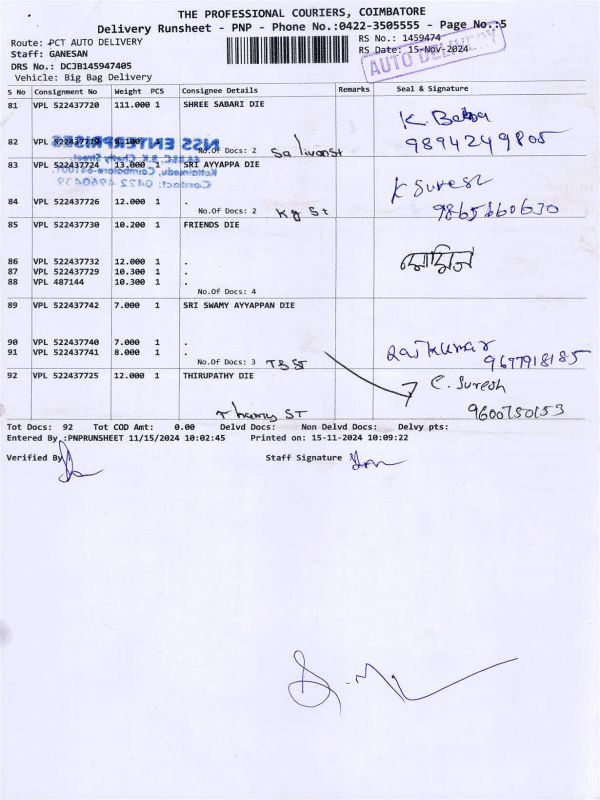 THE PROFESSIONAL COURIERS, COIMBATORE
Delivery Runsheet - PNP - Phone No.:0422-3505555 - Page No.:5
Route: PCT AUTO DELIVERY
RS No.: 1459474
Staff: GANESAN
RS Date: 15-Nov-2024
DRS No.: DCJB145947405
AUTO DELIVERY
Vehicle: Big Bag Delivery
S No Consignment No Weight PCS Consignee Details Remarks Seal & Signature
81 VPL 522437720 111.000 1 SHREE SABARI DIE
K. Baba
9894249805
82 VPL 1
NSS ENTERPRISES
No.Of Docs: 2
83 VPL 522437724 13.000 1 SRI AYYAPPA DIE
Contact: 0422 4960439
K Suresh
84 VPL 522437726 12.000 1 .
No.Of Docs: 2 Kg St
85 VPL 522437730 10.200 1 FRIENDS DIE
86 VPL 522437732 12.000 1 .
87 VPL 522437729 10.300 1 .
88 VPL 487144 10.300 1 .
No.Of Docs: 4
89 VPL 522437742 7.000 1 SRI SWAMY AYYAPPAN DIE
90 VPL 522437740 7.000 1 .
91 VPL 522437741 8.000 1 .
Rajkumar
9677918185
No.Of Docs: 3 TBST
92 VPL 522437725 12.000 1 THIRUPATHY DIE
C. Suresh
9600750153
ST
Tot Docs: 92 Tot COD Amt: 0.00 Delvd Docs: Non Delvd Docs: Delvy pts:
Entered By :PNPRUNSHEET 11/15/2024 10:02:45 Printed on: 15-11-2024 10:09:22
Verified By Staff Signature